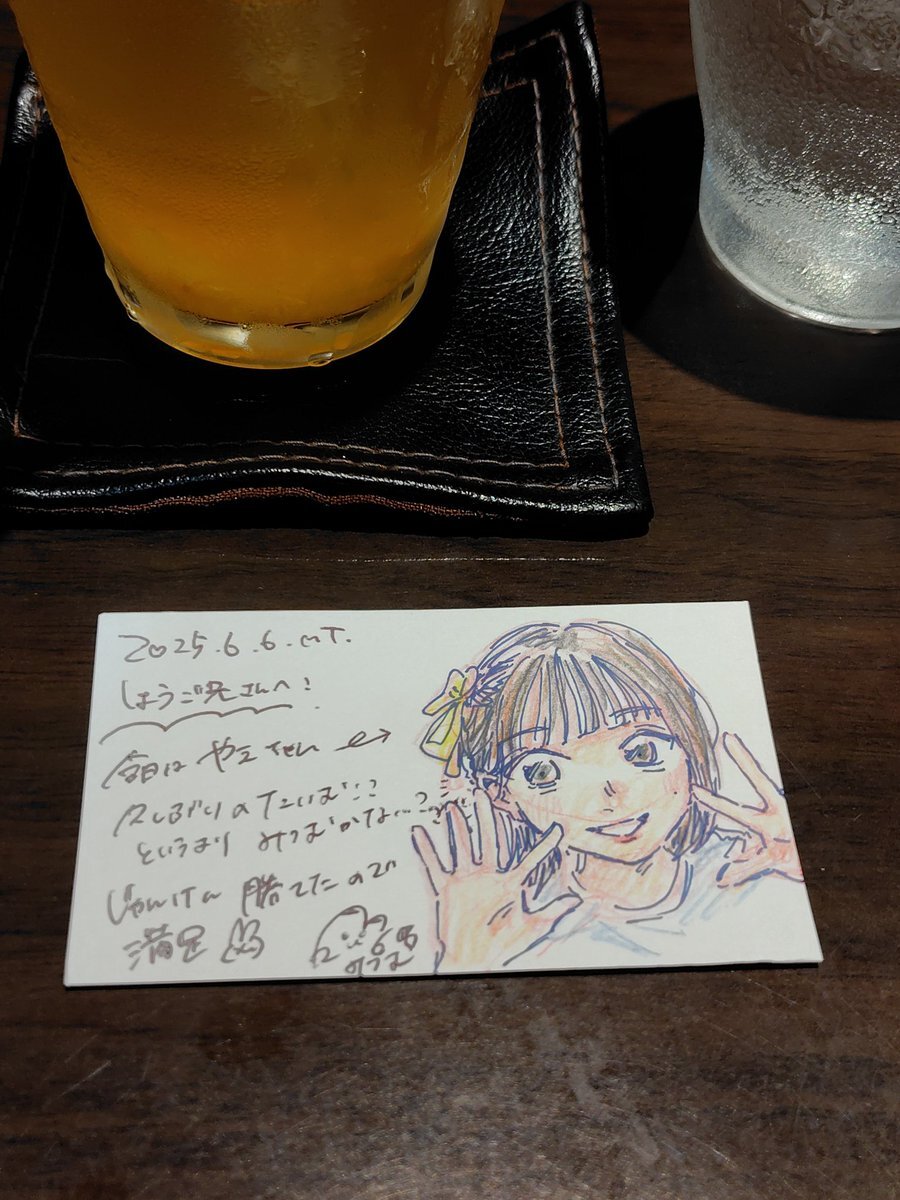 2025.6.6.MT.
しょうご兄さんへ!
今日は やえちゃん →
久しぶりの たいむ!?
というより みつむかな…?
じゃんけん 勝てたので
満足
みつむ